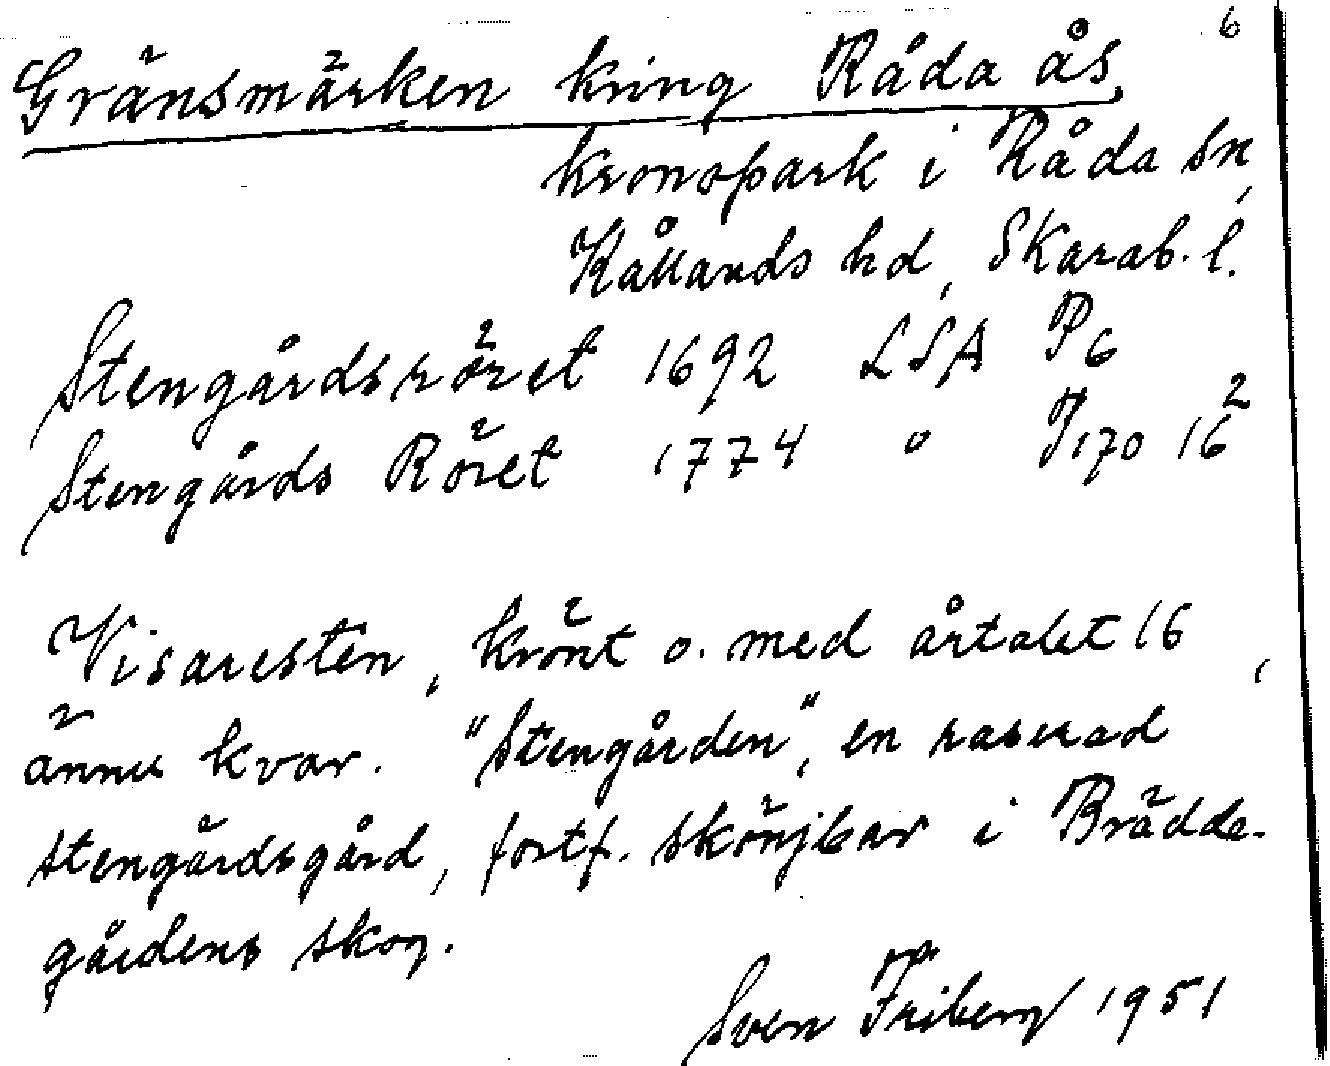 6
Gränsmärken kring Råda ås,
kronopark i Råda sn,
Kållands hd, Skarab. l.
Stengårdsröret 1692 LSA P6
Stengårds Röret 1774 " P170 16²
Visaresten, krönt o. med årtalet 16 ,
ännu kvar. "Stengården", en raserad
stengårdsgård, fortf. skönjbar i Brädde-
gårdens skog.
Sven Friberg 1951